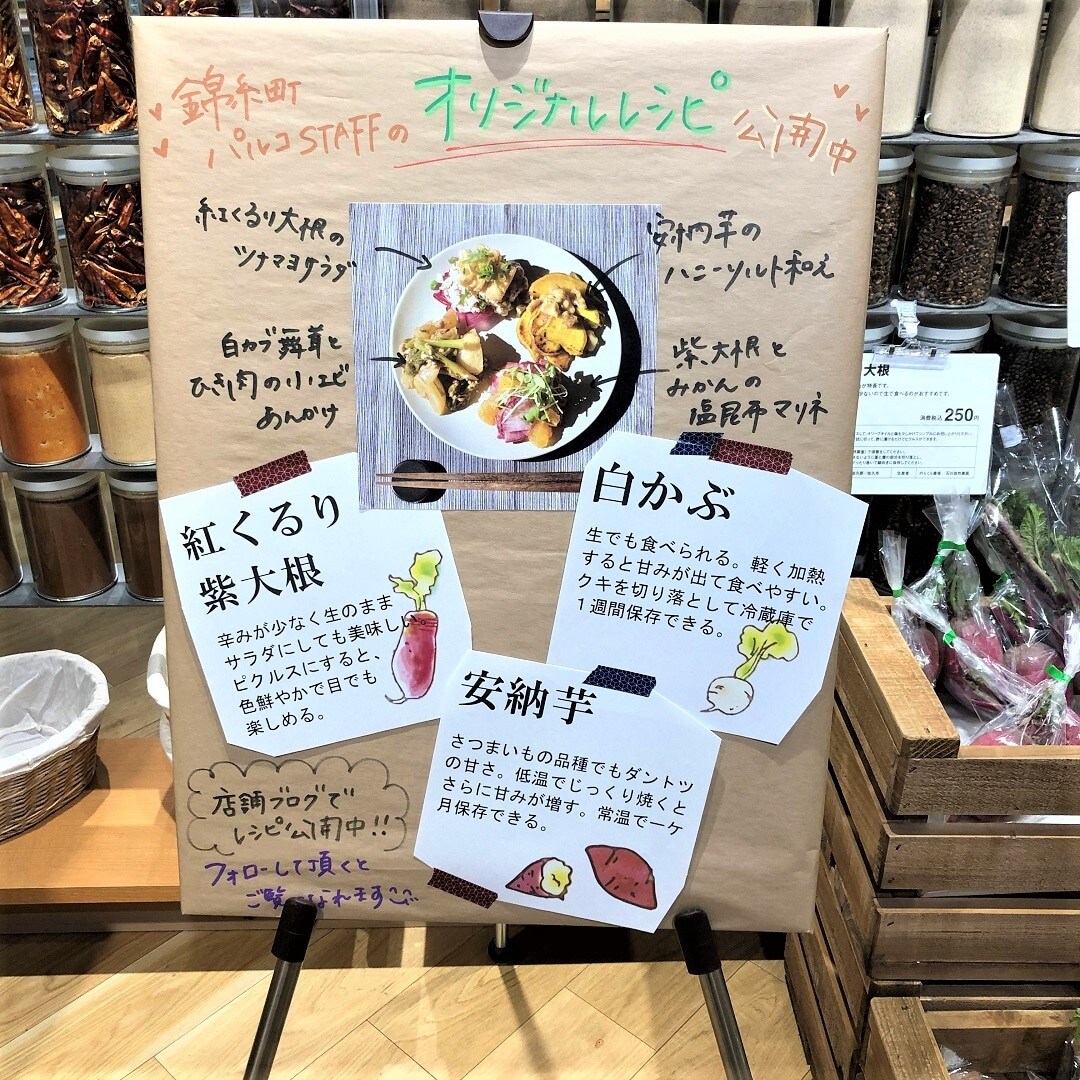 錦糸町
パルコSTAFFの
オリジナルレシピ
公開中
紅くるり大根の
ツナマヨサラダ
安納芋の
ハニーソルト和え
白カブ舞茸と
ひき肉の小エビ
あんかけ
紫大根と
みかんの
塩昆布マリネ
紅くるり
紫大根
辛みが少なく生のまま
サラダにしても美味しい。
ピクルスにすると、
色鮮やかで目でも
楽しめる。
白かぶ
生でも食べられる。軽く加熱
すると甘みが出て食べやすい。
クキを切り落として冷蔵庫で
1週間保存できる。
安納芋
さつまいもの品種でもダントツ
の甘さ。低温でじっくり焼くと
さらに甘みが増す。常温で一ケ
月保存できる。
店舗ブログで
レシピ公開中!!
フォローして頂くと
ご覧になれます
大根
消費税込 250円